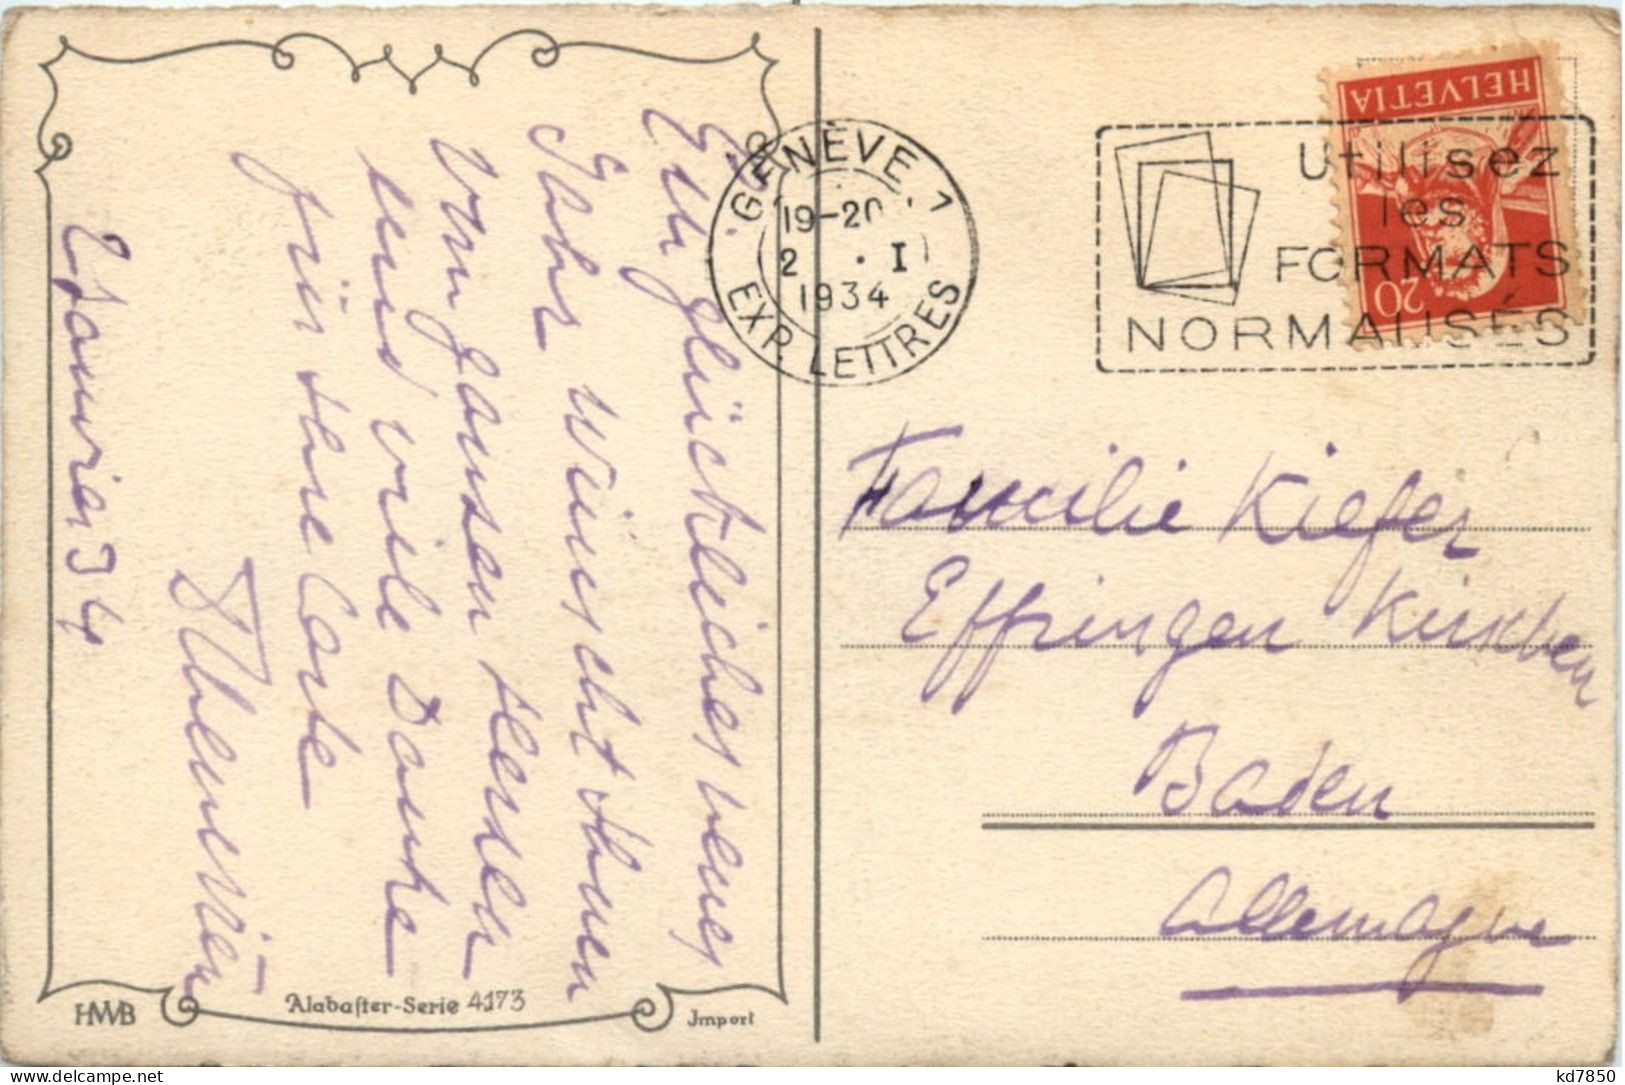 Ein glückliches neues
Jahr wünscht Ihnen
von ganzen Herzen
und viele Danke
für Ihre Carte
2 Januar 34
HWB
Alabaster-Serie 4173
Import
GENÈVE 1
19-20
2 . I
1934
EXP. LETTRES
Utilisez
les
FORMATS
NORMALISÉS
HELVETIA
20
Familie Kiefer
Effringen Kirchen
Baden
Allemagne
kd7850